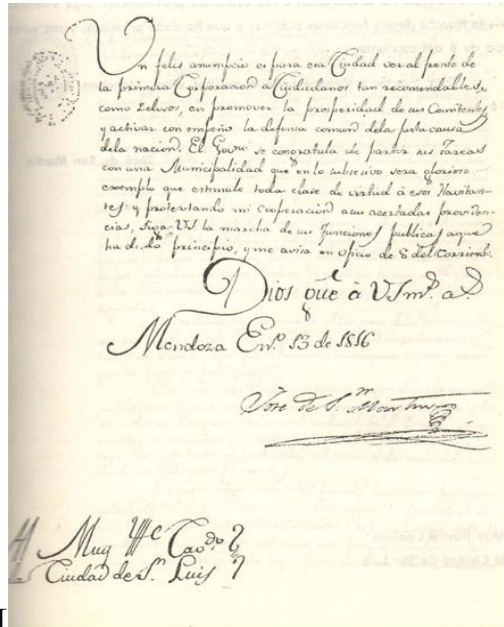 Un felis anuncio es para esa Ciudad ver al frente de
la primera Corporacion à Ciudadanos tan recomendables,
como zelosos, en promover la prosperidad de sus Comitentes,
y activar con empeño la defensa comun dela justa causa
dela nacion. El Govno se congratula de partir sus tareas
con una Municipalidad qe en lo subcesivo sera glorioso
exemplo que estimule toda clase de virtud à esos Havitan-
tes: y protestando mi cooperacion a sus acertadas providen-
cias, siga VS la marcha de sus funciones publicas aque
ha dado principio, y me avisa en oficio de 8 del corriente.
Dios gue à VS ms as
Mendoza Eno 13 de 1816
José de Sn Martin
Muy Ille Cavdo
Ciudad de Sn Luis